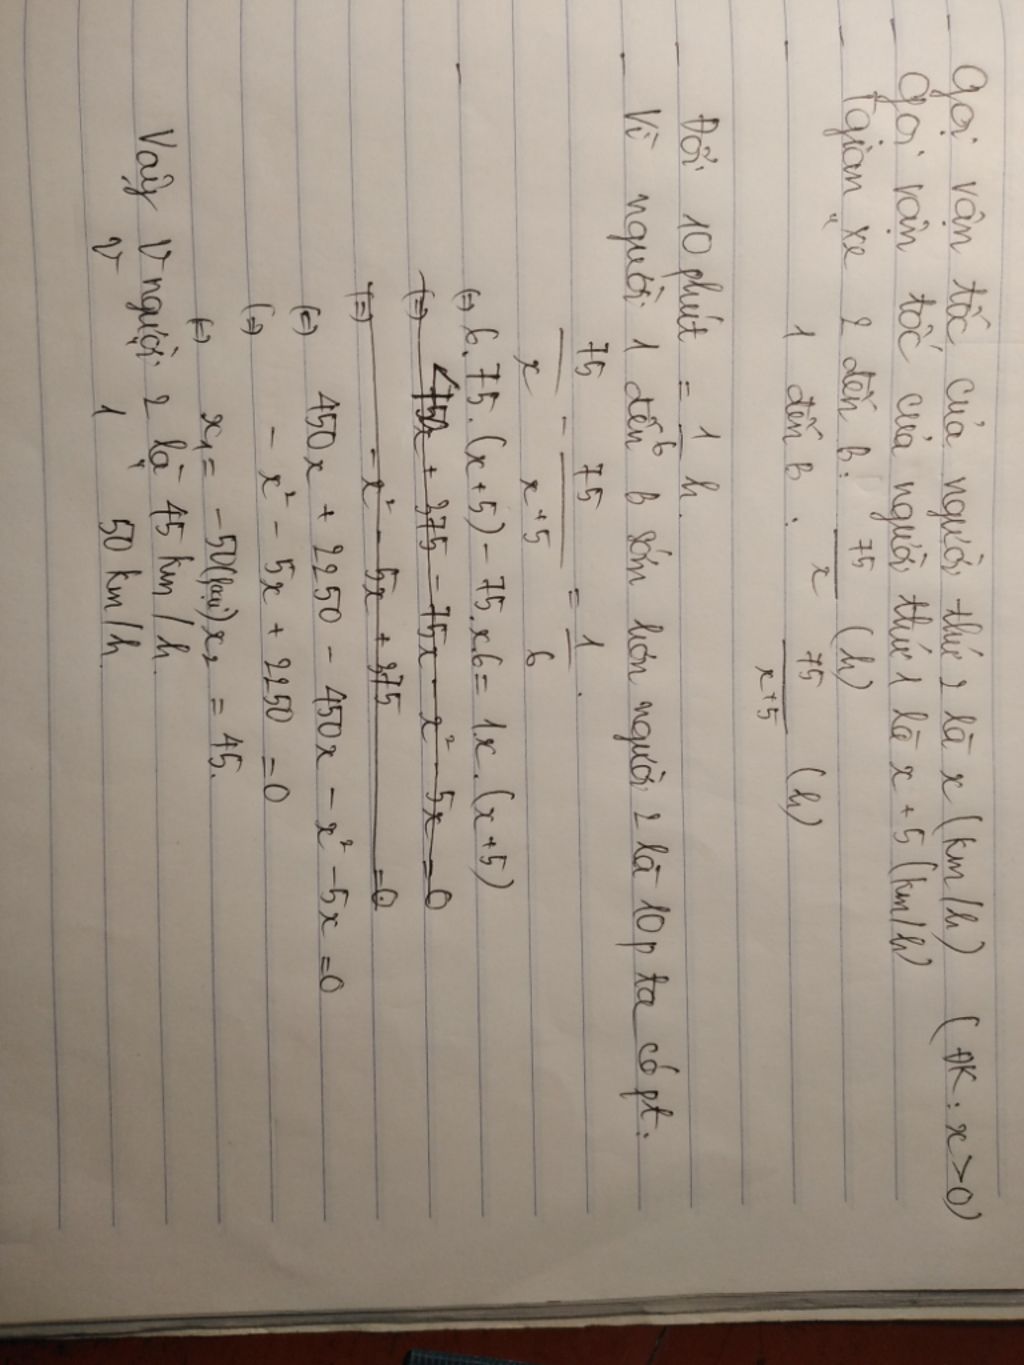 - Gọi vận tốc của người thứ 2 là x (km/h) (ĐK: x>0)
- Gọi vận tốc của người thứ 1 là x+5 (km/h)
- Tgian xe 2 đến B: 75/x (h)
- " 1 đến B: 75/x+5 (h)
- Đổi 10 phút = 1/6 h.
- Vì người 1 đến B sớm hơn người 2 là 10p ta có pt:
75/x - 75/x+5 = 1/6.
(=) 6.75.(x+5) - 75.x.6 = 1x.(x+5)
(=) 75x + 375 - 75x - x² - 5x = 0
(=) - x² - 5x + 375 = 0
(=) 450x + 2250 - 450x - x² - 5x = 0
(=) - x² - 5x + 2250 = 0
(=) x₁ = -50 (loại) x₂ = 45.
Vậy V người 2 là 45 km/h.
V " 1 " 50 km/h.